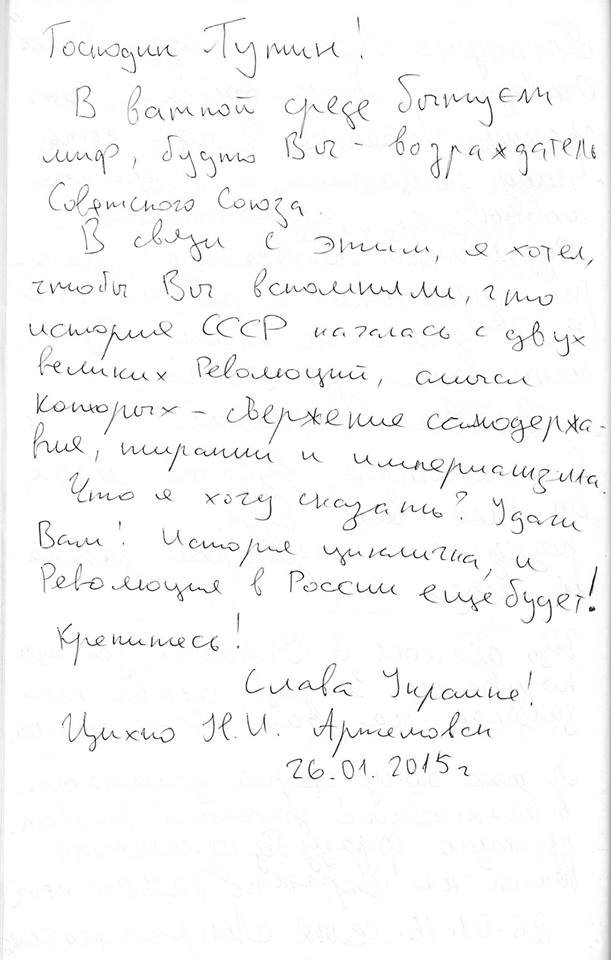 Господин Путин!
В ватной среде бытуєли
миф, будто Вы - возраждатель
Советского Союза
В связи с этим, я хотел,
чтобы Вы вспомнили, что
история СССР началась с двух
великих Революций, смысл
которых - свержение самодержа-
вия, тирании и империализма.
Что я хочу сказать? Удачи
Вам! История циклична, и
Революция в России ещё будет!
Крепитесь!
Слава Украине!
Цихно Н.И. Артемовск
26.01.2015г